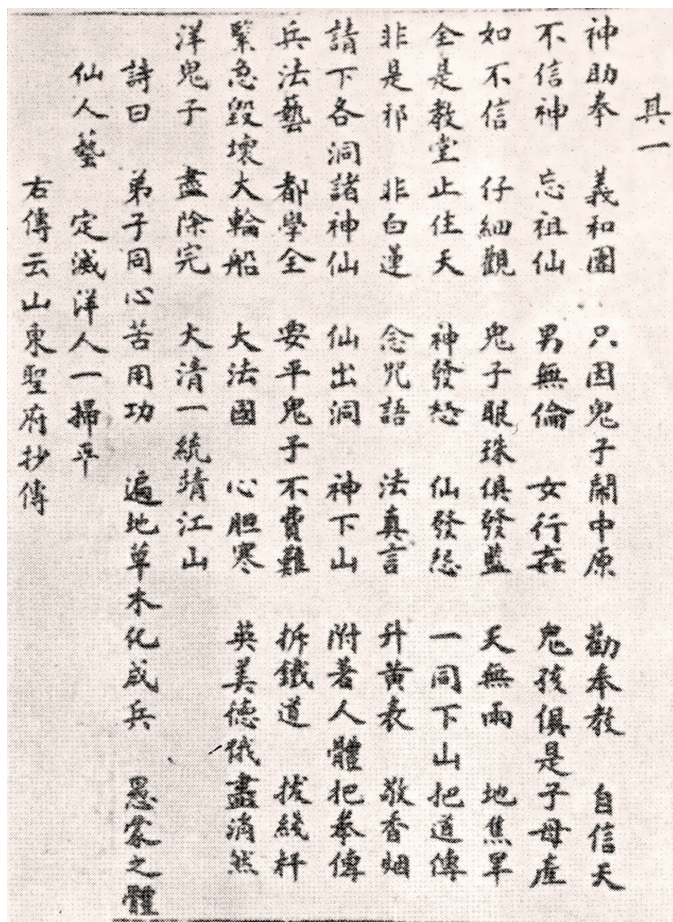 其一
神助拳 義和團 只因鬼子鬧中原 勸奉教 自信天
不信神 忘祖仙 男無倫 女行姦 鬼孩俱是子母產
如不信 仔細觀 鬼子眼珠俱發藍 天無雨 地焦旱
全是教堂止住天 神發怒 仙發怒 一同下山把道傳
非是邪 非白蓮 念咒語 法真言 升黃表 敬香烟
請下各洞諸神仙 仙出洞 神下山 附著人體把拳傳
兵法藝 都學全 要平鬼子不費難 拆鐵道 拔綫杆
緊急毀壞大輪船 大法國 心胆寒 英美德俄盡消然
洋鬼子 盡除完 大清一統靖江山
詩曰 弟子同心苦用功 遍地草木化成兵 愚蒙之體
仙人藝 定滅洋人一掃平
右傳云山東聖府抄傳